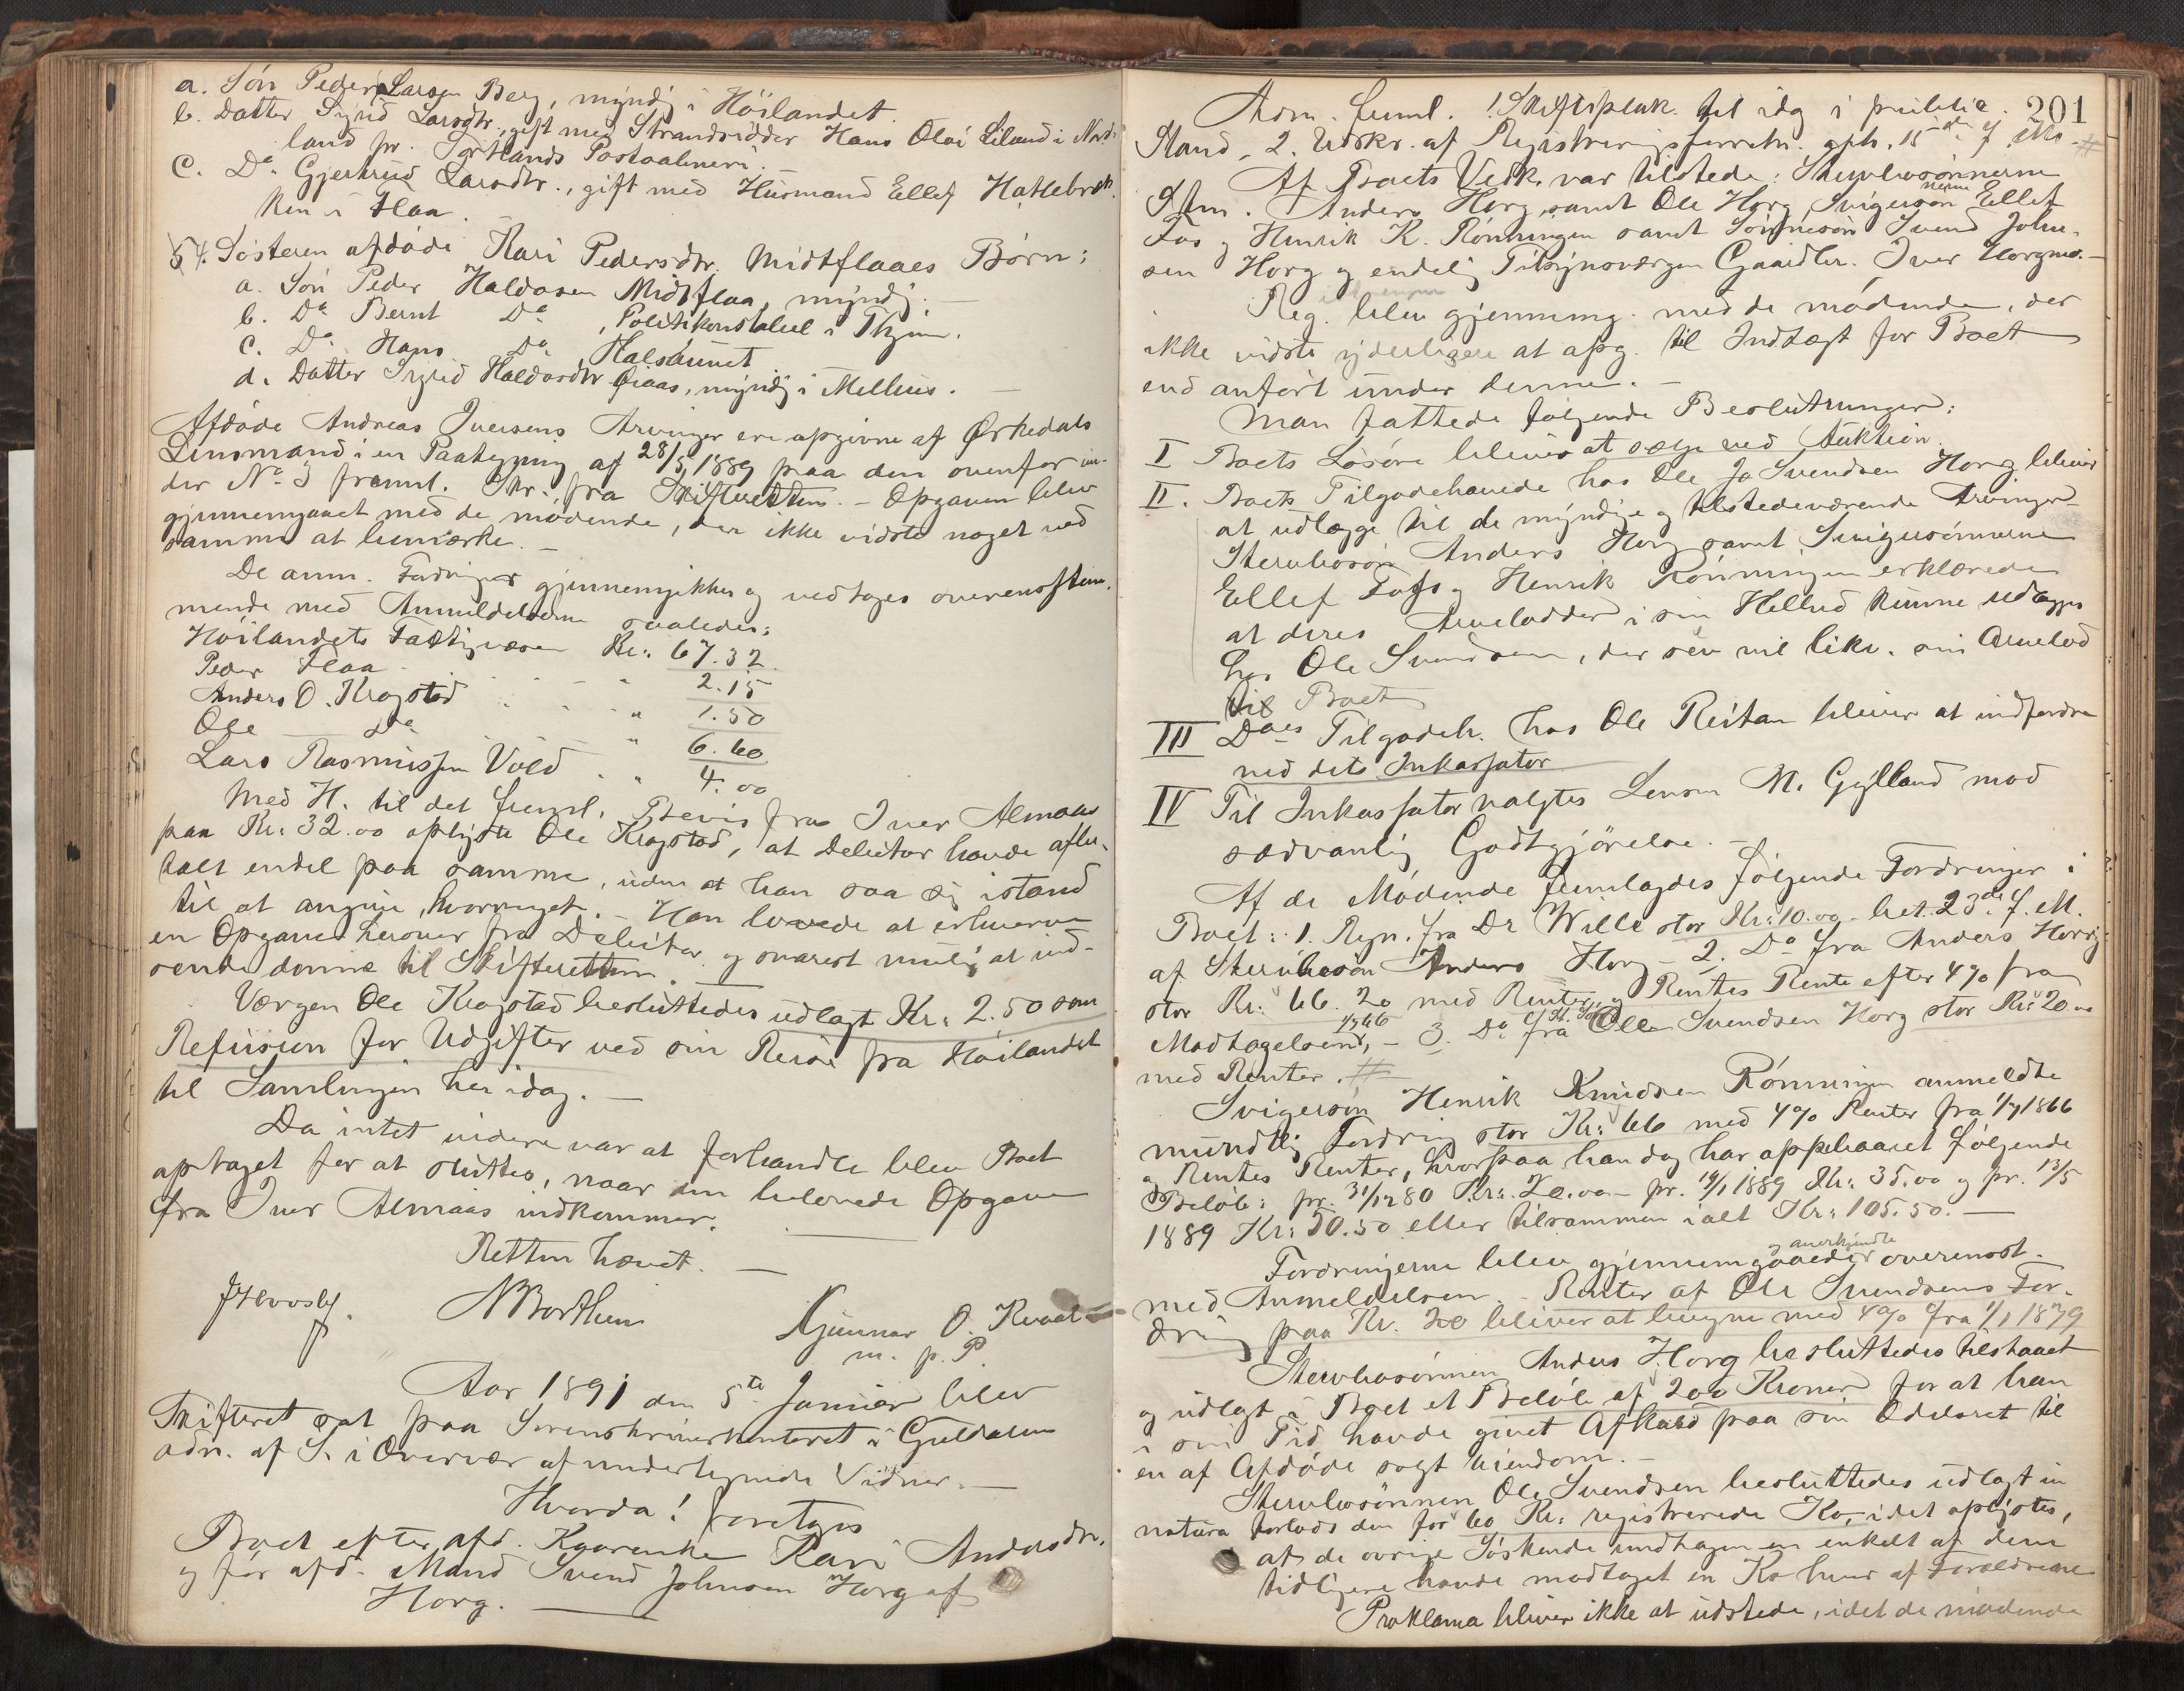 a. Søn Peder Larsen Berg, myndig i Höilandet.
b. Datter Sigrid Larsdtr., gift med Strandsidder Hans Olai Liland i Nord-
land pr. Tortlands Postaabneri.
c. Do Gjertrud Larsdtr., gift med Husmand Ellef Hatlebrek
ken i Flaa.
54. Søsteren afdøde Kari Pedersdtr. Midtflaaes Børn:
a. Søn Peder Haldosen Midtflaa, myndig. —
b. Do Bernt Do , Politikonstabel i Thjem.
c. Do Hans Do , Halsaunet
d. Datter Sigrid Haldosdtr Øiaas, myndig i Melhus. —
Afdøde Andreas Iversens Arvinger ere opgivne af Ørkedals
Lensmand i en Paategning af 28/5 1889 paa den ovenfor un-
der No 3 fremt. Skr. fra Skifteretten. – Opgaven blev
gjennemgaaet med de mødende, der ikke vidste noget ved
samme at bemærke. —
De anm. Fordringer gjennemgikkes og vedtoges overensstem-
mende med Anmeldelserne saaledes:
Höilandets Fattigvæsen Kr: 67.32.
Peder Flaa " 2.15
Anders O. Kragstad " 1.50
Ole Do " 6.60
Lars Rasmussen Vold " 4.00
Med H. til det freml. Bevis fra Iver Almaas
paa Kr: 32.00 oplyste Ole Kragstad, at Debitor havde afbe-
talt endel paa samme, uden at han saa sig istand
til at angive, hvormeget. – Han lovede at erhverve
en Opgave herover fra Debitor og snarest mulig at ind-
sende denne til Skifteretten.
Værgen Ole Kragstad besluttedes udlagt Kr: 2.50 som
Refusion for Udgifter ved sin Reise fra Höilandet
til Samlingen her idag. —
Da intet videre var at forhandle blev Boet
optaget for at sluttes, naar den belovede Opgave
fra Iver Almaas indkommer. —
Retten hævet. —
NBorthen
Gunnar O. Kvaal
m. p. P.
Aar 1891 den 5te Januar blev
Skifteret sat paa Sorenskriverkontoret i Guldalen
adm. af S. i Overvær af undertegnede Vidner. —
Hvorda! foretoges
Boet efter afd. Kaarenke Kari Andersdtr.
og før afd. Mand Svend Johnsen Horg af
Horg. —
201
Adm. freml. 1. Skiftsplak. til idag i publicia.
Stand, 2. Udskr. af Registreringsforretn. afh. 15de f. Mts #
Af Boets Vedk. var tilstede: Stervbosønnerne
Anders Horg, samt Ole Horg, Svigersønnerne Ellef
Fos og Henrik K. Rønningen samt Sønnesøn Svend John-
sen Horg og endelig Tilsynsværgen Gaardbr. Iver Horgmo. —
Reg. blev gjennemg. med de mødende, der
ikke vidste yderligere at opg. til Indtægt for Boet
end anført under denne. —
Man fattede følgende Beslutninger:
I Boets Løsøre bliver at sælge ved Auktion.
II. Boets Tilgodehavende hos Ole Svendsen Horg bliver
at udlægge til de myndige og tilstedeværende Arvinger
Stervbosøn Anders Horg samt Svigersønnerne
Ellef Fos og Henrik Rønningen erklærede
at deres Arvelodder i sin Helhed kunne udlægges
hos Ole Svendsen, der selv vil likv. sin Arvelod
til Boet
III Does Tilgodeh. hos Ole Reitan bliver at indfordre
ved dets Inkassator
IV Til Inkassator valgtes Lensm M. Gylland mod
sædvanlig Godtgjørelse. —
Af de Mødende fremlagdes følgende Fordringer i
Boet: 1. Regn. fra Dr Wille stor Kr: 10.00 – bet. 23de f. M.
af Stervbosøn Anders Horg – 2. Do fra Anders Horg
stor Kr: 66.20 med Renter og Rentes Rente efter 4 % fra
Modtagelsen, – 3. Do fra Ole Svendsen Horg stor Kr: 20.00
med Renter. #
Svigersøn Henrik Knudsen Rønningen anmeldte
mundtlig Fordring stor Kr: 66 med 4 % Renter fra 1/7 1866
og Rentes Renter, hvorpaa han dog har oppebaaret følgende
Beløb: pr. 31/12 80 Kr: 20.00 – pr. 14/1 1889 Kr: 35.00 og pr. 13/5
1889 Kr: 50.50 eller tilsammen ialt Kr: 105.50. —
Fordringerne blev gjennemgaaede og anerkjendte overenst.
med Anmeldelsen. – Renter af Ole Svendsens For-
dring paa Kr. 20 bliver at beregne med 4 % fra 1/1 1879
Stervbosønnen Anders Horg besluttedes tilstaaet
og udlagt i Boet et Beløb af 200 Kroner for at han
i sin Tid havde givet Afkald paa sin Odelsret til
en af Afdøde solgt Eiendom. —
Stervbosønnen Ole Svendsen besluttedes udlagt in
natura forlods den for 60 Kr. registrerede Ko, idet oplystes,
at de øvrige Søskende undtagen en enkelt af dem
tidligere havde modtaget en Ko hver af Forældrene
Proklama bliver ikke at udstede, idet de mødende